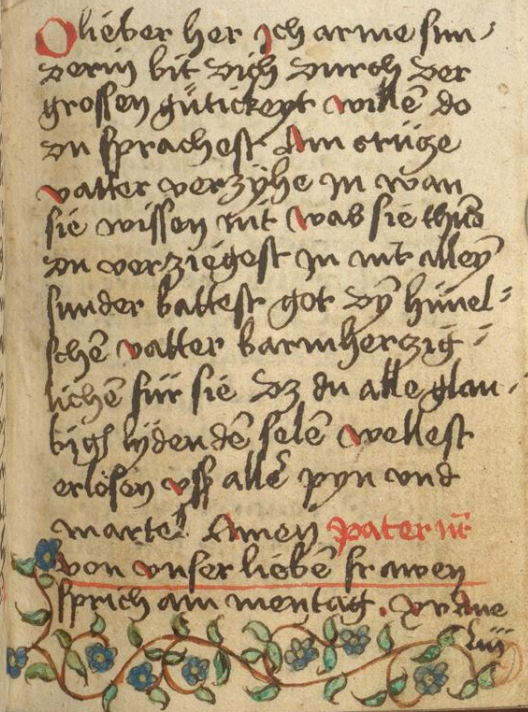 O lieber her Ich arme sun-
derin bit dich durch der
grossen gütickeyt willē do
du sprachest Am crütze
vatter verzyhe In wan
sie wissen nit was sie thūd
du verziegest In nit alleÿ
sunder battest got dÿ himel-
schē vatter barmherzig-
lichē für sie dz du alle glau-
bigē lydendē selē wellest
erlösen vß allē pyn vnd
marter Amen pater nr̄
von vnser liebē frawen
sprich am mentag. xv aue